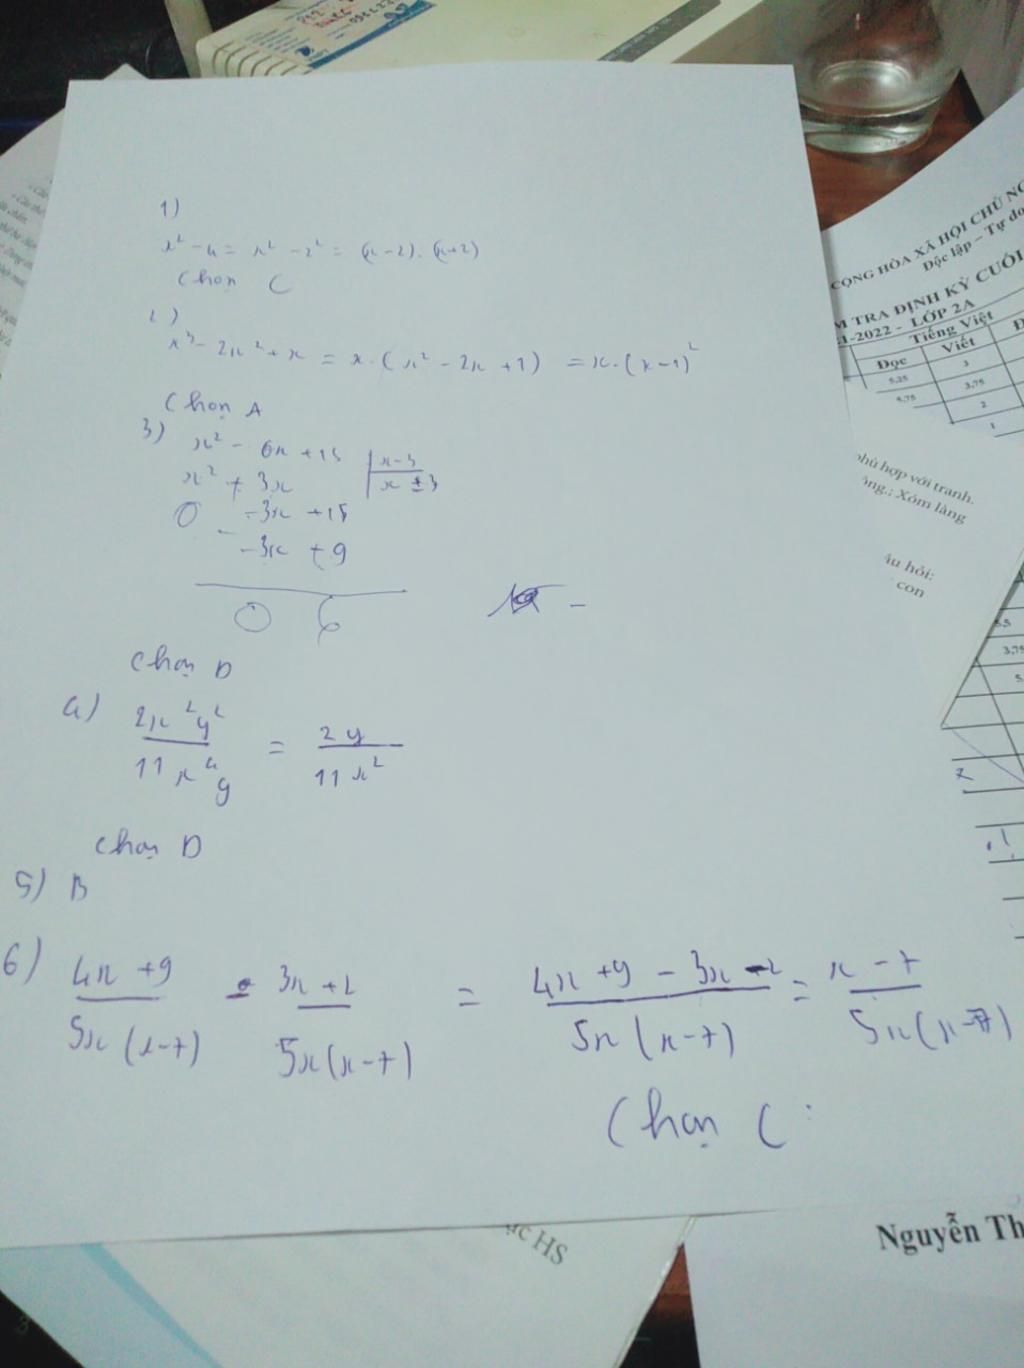 1)
x² - 4 = x² - 2² = (x-2).(x+2)
Chọn C
2)
x³ - 2x² + x = x.(x² - 2x + 1) = x.(x-1)²
Chọn A
3) x² - 6x + 15 | x-3
x² + 3x | x - 3
0 -3x + 15
- -3x + 9
0 6
Chọn D
4) 2x²y² / 11x⁴y = 2y / 11x²
Chọn D
5) B
6) 4x+9 / 5x(x-7) - 3x+2 / 5x(x-7) = 4x+9-3x-2 / 5x(x-7) = x-7 / 5x(x-7)
Chọn C
CỘNG HÒA XÃ HỘI CHỦ NG
Độc lập – Tự do
M TRA ĐỊNH KỲ CUỐI
1-2022 - LỚP 2A
Tiếng Việt
Đọc Viết
5,25 3
4,75 3,75
2
1
phù hợp với tranh.
ông.; Xóm làng
âu hỏi:
con
5,5
3,75
5
ực HS
Nguyễn Th